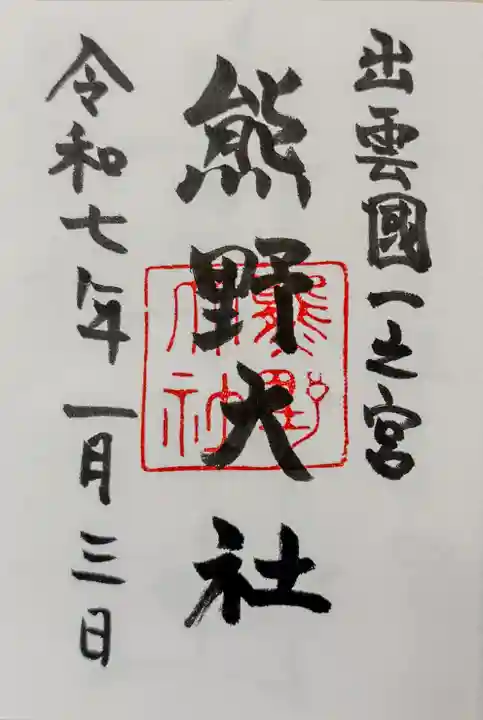 出雲國一之宮
熊野大社
熊野大社
令和七年一月三日